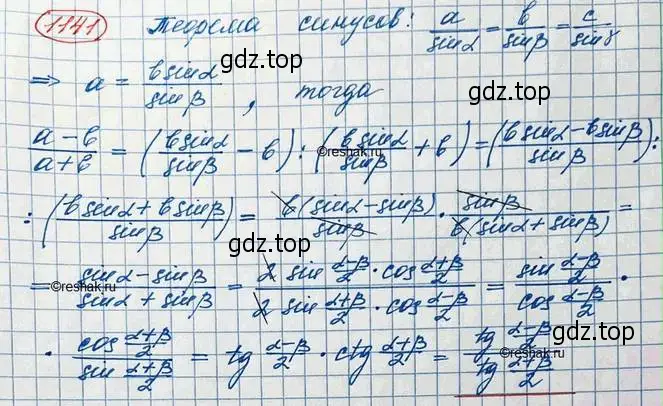 1141 Теорема синусов: a/sinα = b/sinβ = c/sinγ
⇒ a = bsinα/sinβ, тогда
gdz.top
(a-b)/(a+b) = (bsinα/sinβ - b) : (bsinα/sinβ + b) = ((bsinα - bsinβ)/sinβ) :
©reshak.ru
gdz.top
: ((bsinα + bsinβ)/sinβ) = b(sinα - sinβ)/sinβ · sinβ/b(sinα + sinβ) =
gdz.top
= (sinα - sinβ)/(sinα + sinβ) = (2 sin (α-β)/2 · cos (α+β)/2)/(2 sin (α+β)/2 · cos (α-β)/2) = (sin (α-β)/2)/(cos (α-β)/2) ·
©reshak.ru
©reshak.ru
gdz.top
· (cos (α+β)/2)/(sin (α+β)/2) = tg (α-β)/2 · ctg (α+β)/2 = (tg (α-β)/2)/(tg (α+β)/2)
gdz.top